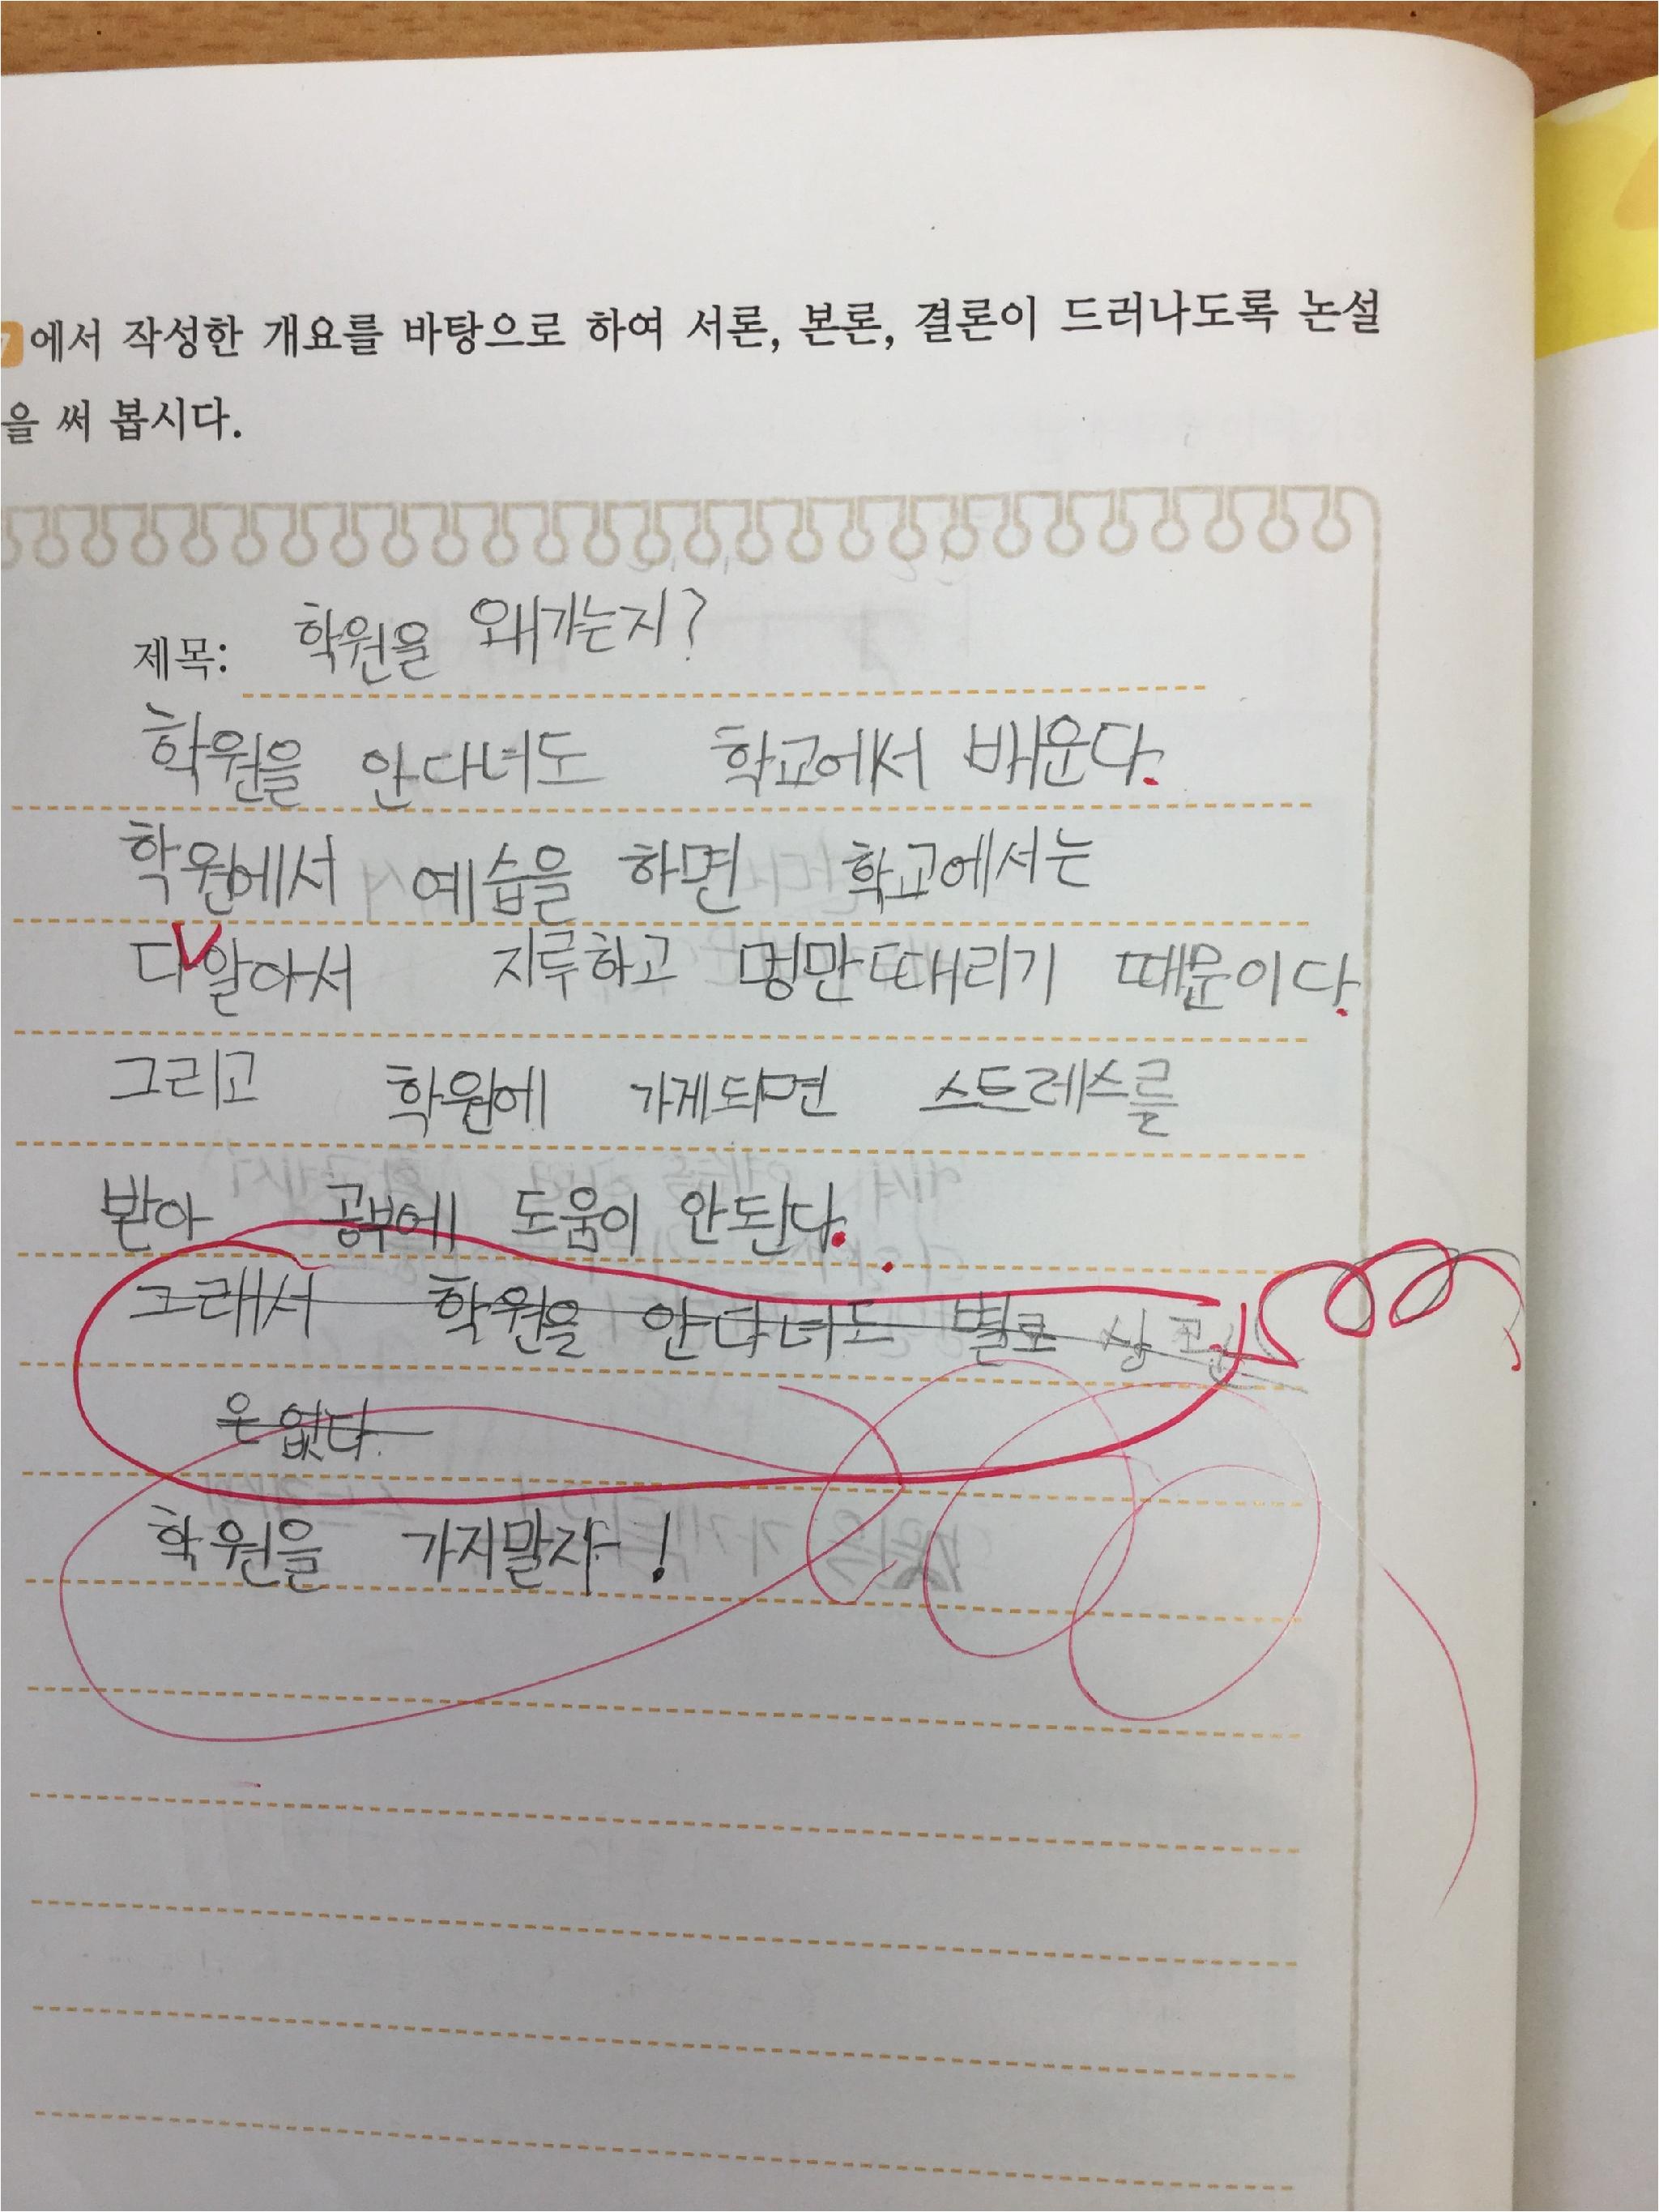 7에서 작성한 개요를 바탕으로 하여 서론, 본론, 결론이 드러나도록 논설
을 써 봅시다.
제목: 학원을 왜가는지?
학원을 안다녀도 학교에서 배운다.
학원에서 예습을 하면 학교에서는
다알아서 지루하고 멍만때리기 때문이다.
그리고 학원에 가게되면 스트레스를
받아 공부에 도움이 안된다.
그래서 학원을 안다녀도 별로 상관
은 없다.
학원을 가지말자!